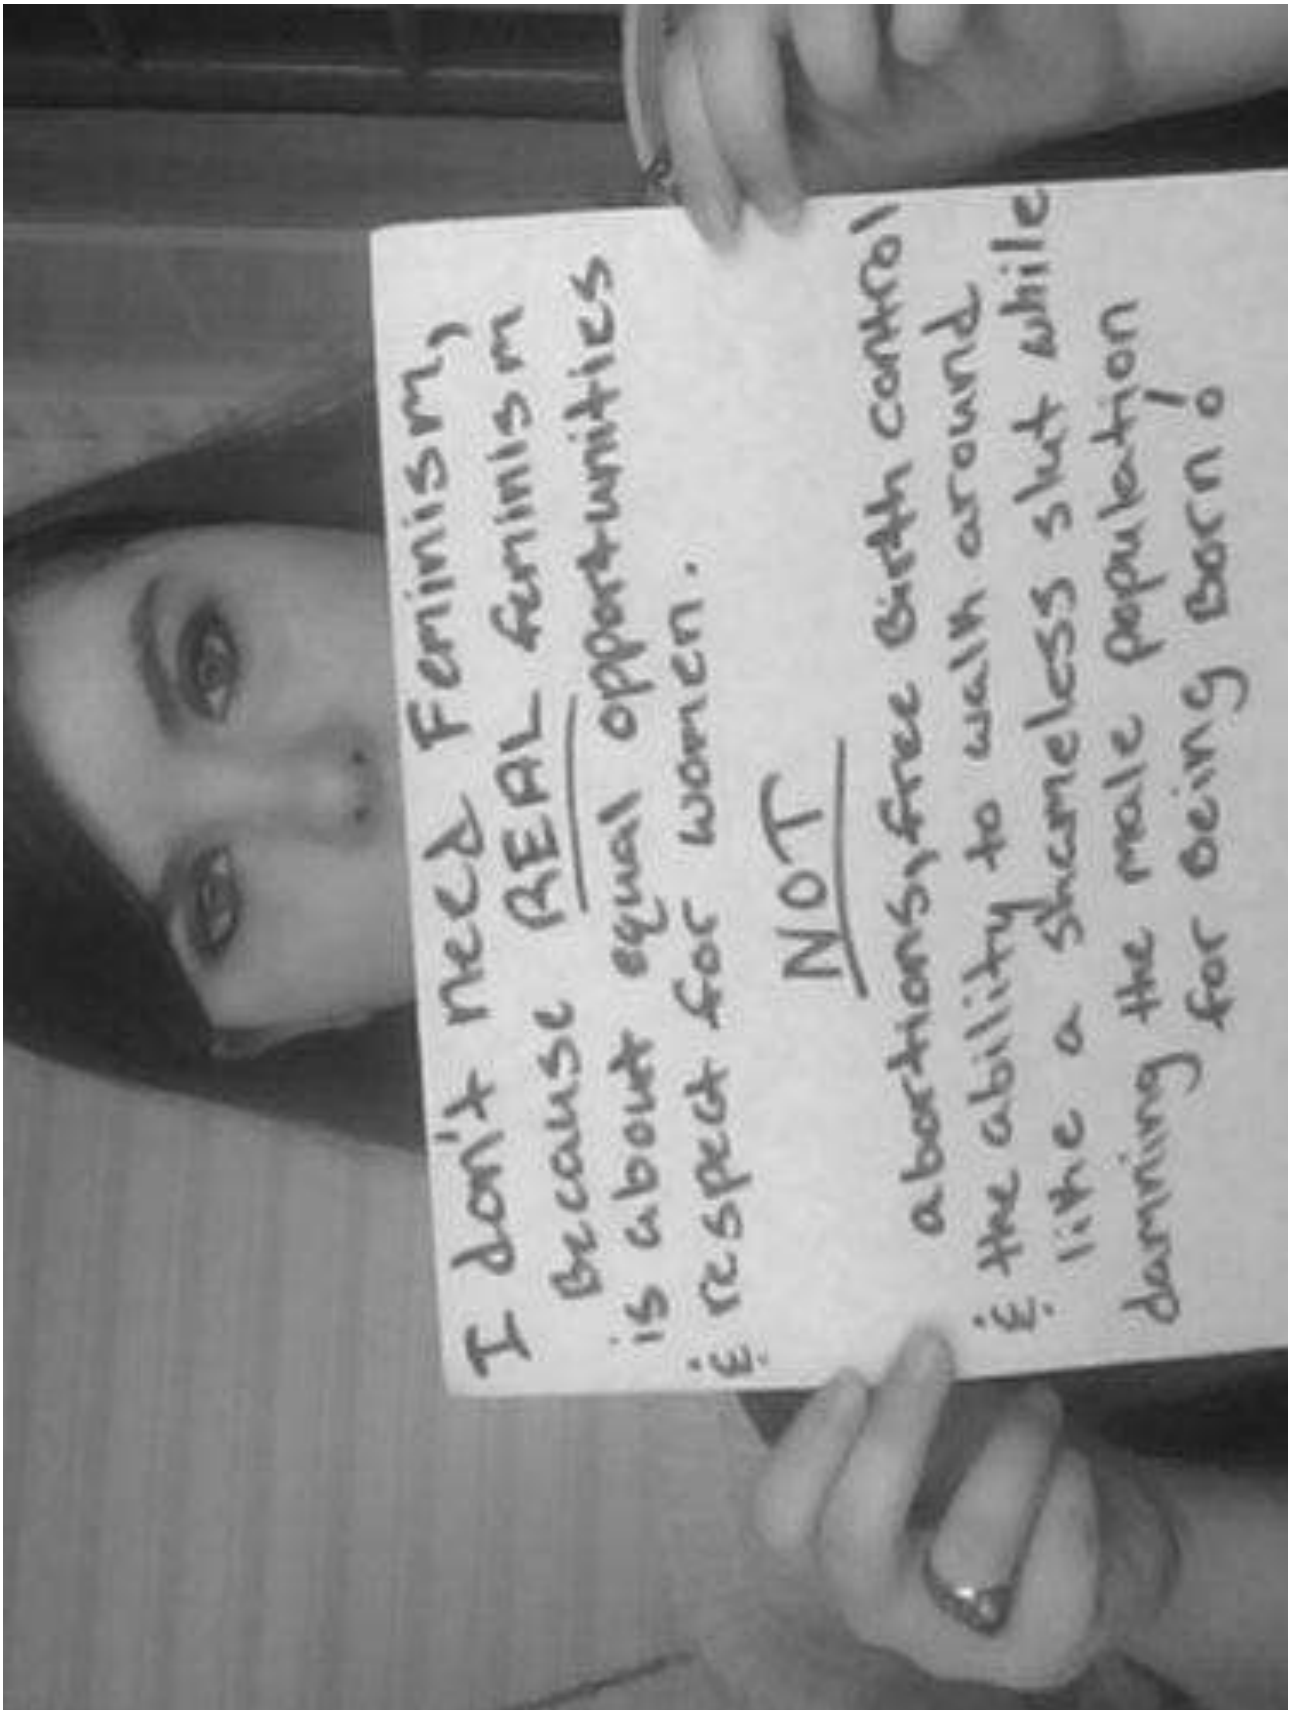 I don't need Feminism,
Because REAL feminism
is about equal opportunities
& respect for women.
NOT
abortions, free Birth control
& the ability to walk around
like a shameless slut while
damning the male population
for being Born!